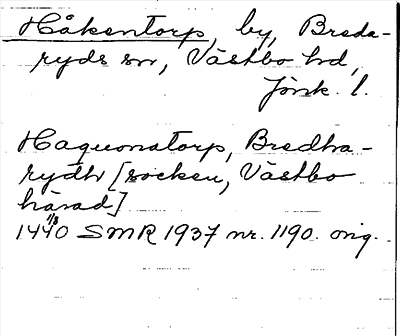 Håkentorp, by, Breda-
ryds sn, Västbo hd,
Jönk. l.
Haquonatorp, Bredha-
rydh [socken, Västbo
härad]
1440 1/8 SMR 1937 nr. 1190. orig.